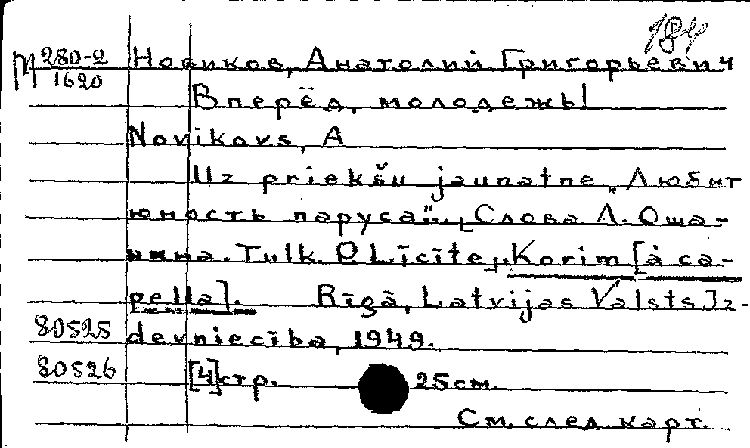 184
М 280-2
1620
Новиков, Анатолий Григорьевич
Вперёд, молодежь!
Novikovs, A
Uz priekšu jaunatne „Любит
юность паруса"... [Слова Л. Оша-
нина. Tulk. P Līcīte]. Korim [à ca-
pella]. Rīgā, Latvijas Valsts Iz-
80525 devniecība, 1949.
80526 [4] стр. 25 см.
См. след карт.